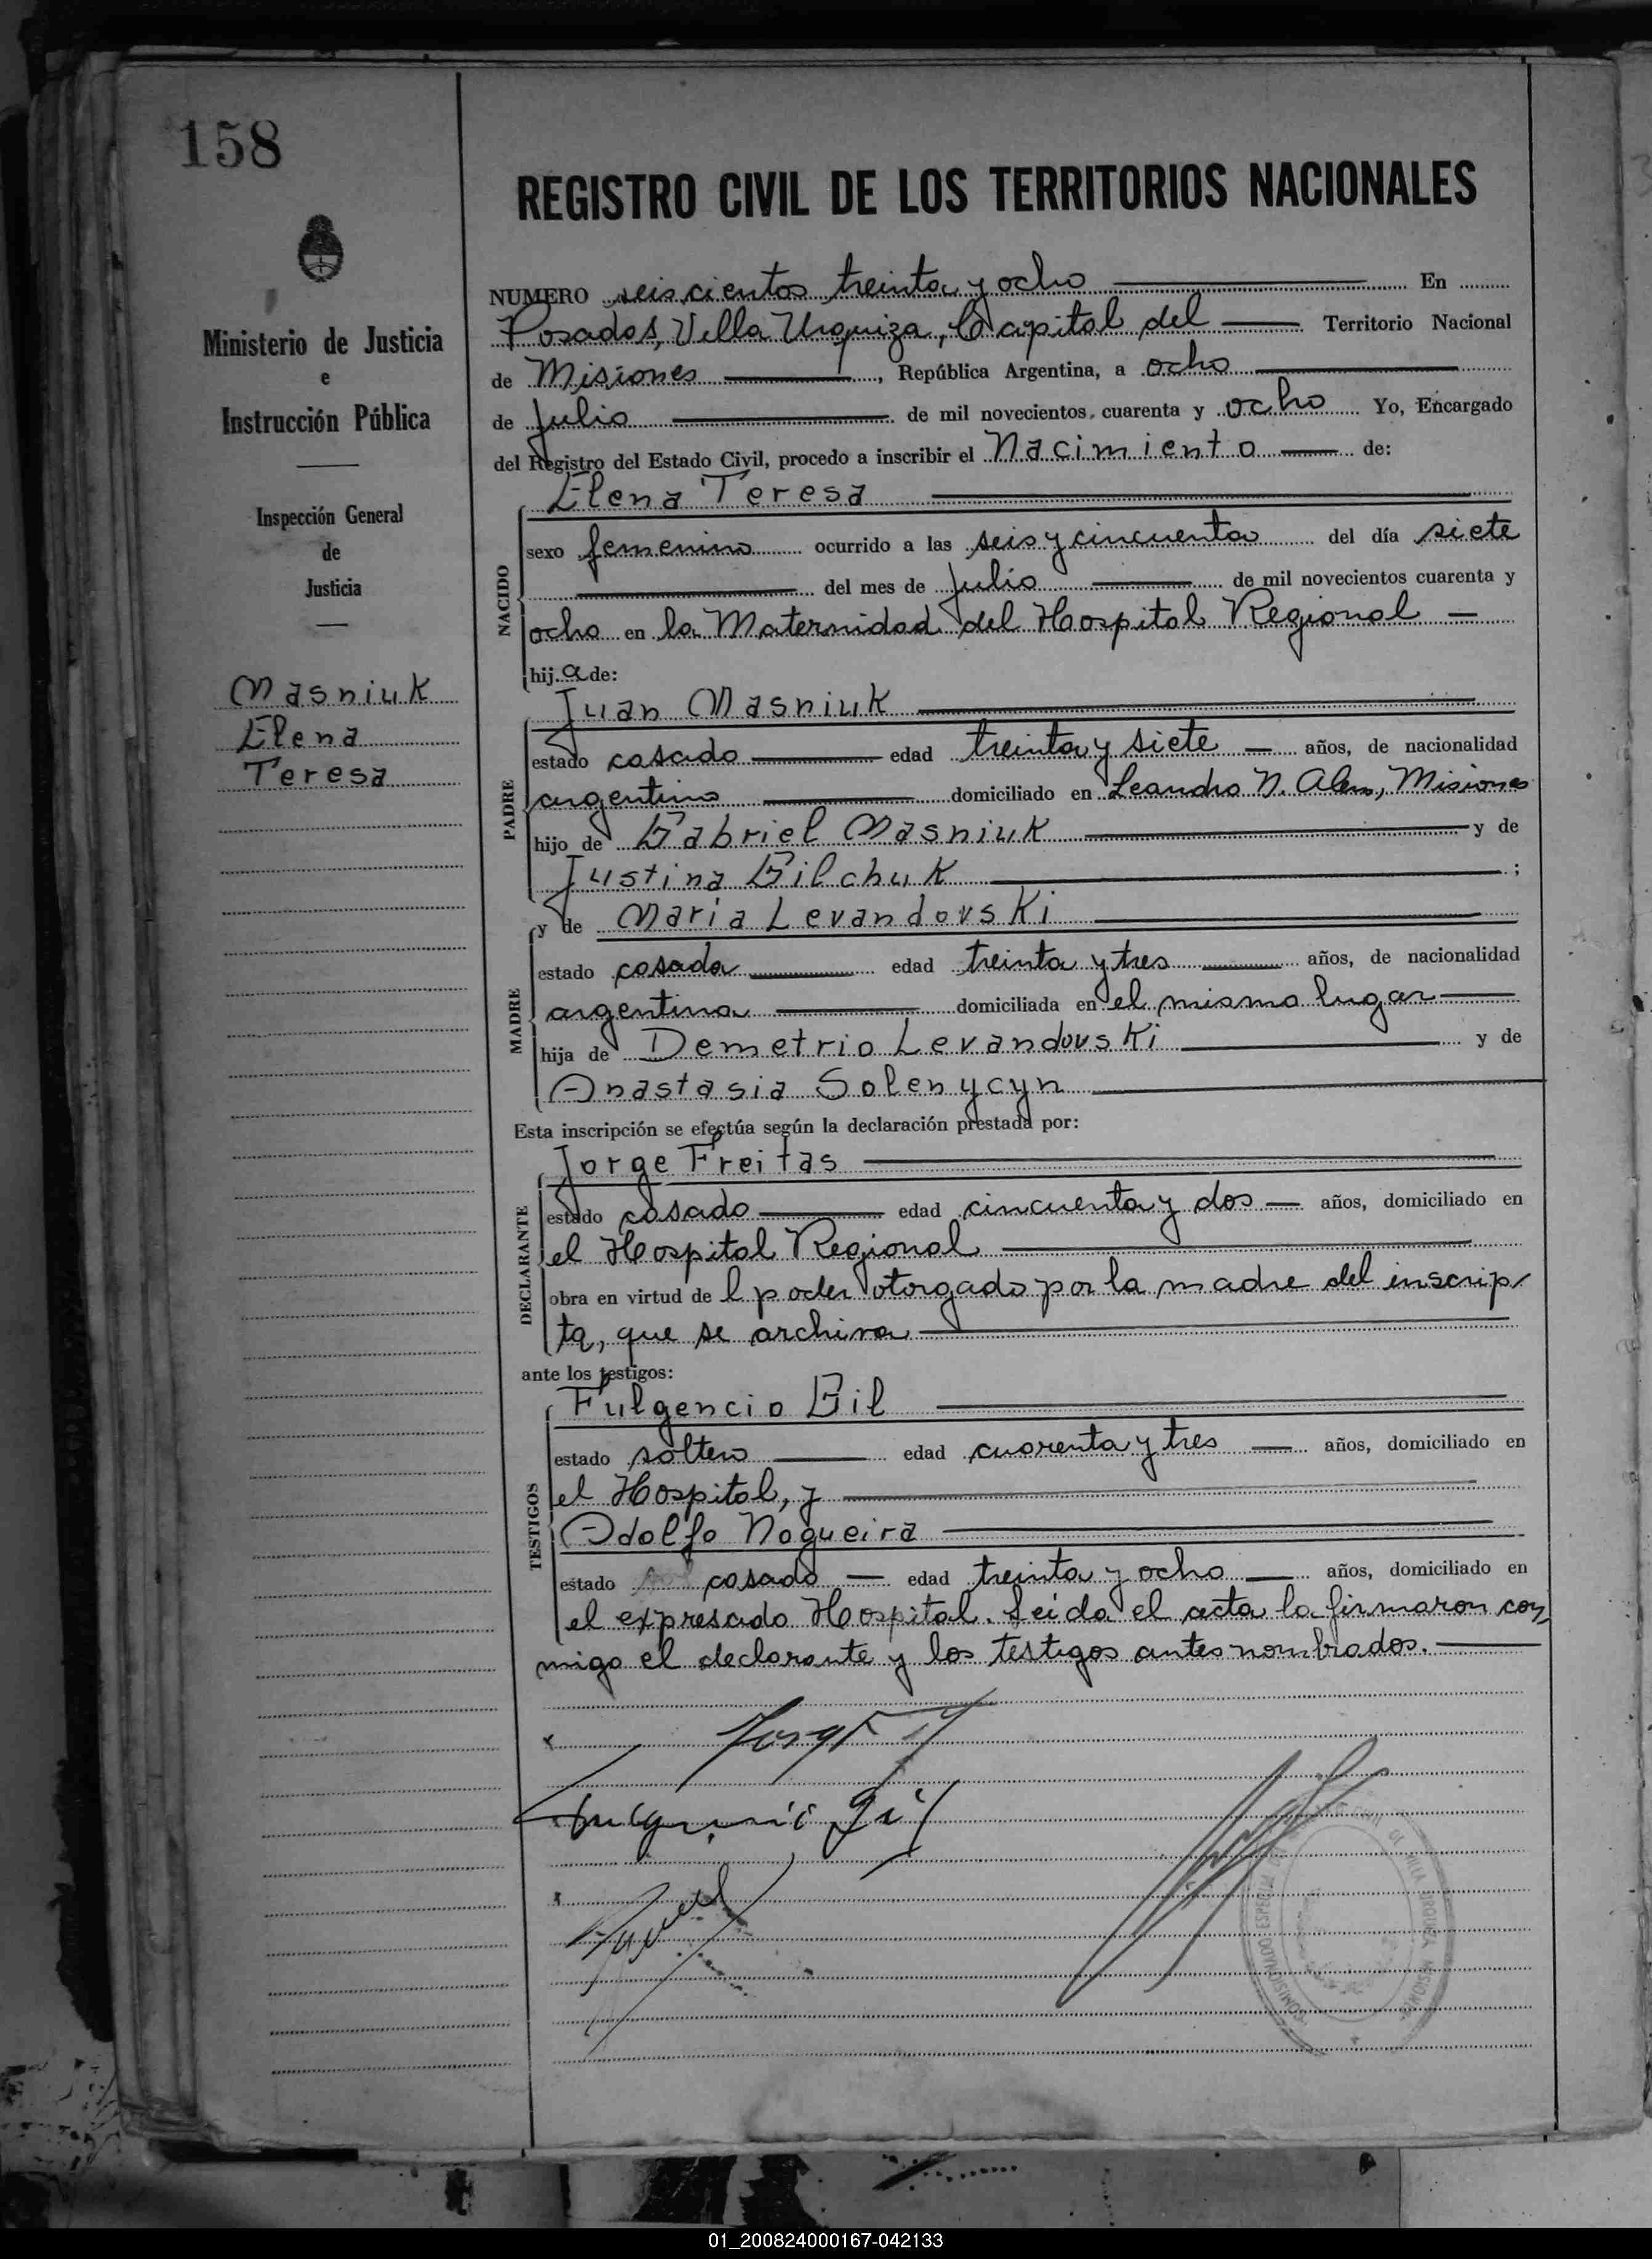 158
Ministerio de Justicia
e
Instrucción Pública
Inspección General
de
Justicia
Masniuk
Elena
Teresa
REGISTRO CIVIL DE LOS TERRITORIOS NACIONALES
NUMERO seiscientos treinta y ocho En
Posadas, Villa Urquiza, Capital del Territorio Nacional
de Misiones, República Argentina, a ocho
de julio de mil novecientos cuarenta y ocho Yo, Encargado
del Registro del Estado Civil, procedo a inscribir el Nacimiento de:
Elena Teresa
NACIDO
sexo femenino ocurrido a las seis y cincuenta del día siete
del mes de julio de mil novecientos cuarenta y
ocho en la Maternidad del Hospital Regional
hija de:
Juan Masniuk
PADRE
estado casado edad treinta y siete años, de nacionalidad
argentino domiciliado en Leandro N. Alem, Misiones
hijo de Gabriel Masniuk y de
Justina Gilchuk ;
y de Maria Levandovski
MADRE
estado casada edad treinta y tres años, de nacionalidad
argentina domiciliada en el mismo lugar
hija de Demetrio Levandovski y de
Anastasia Solenycyn
Esta inscripción se efectúa según la declaración prestada por:
Jorge Freitas
DECLARANTE
estado casado edad cincuenta y dos años, domiciliado en
el Hospital Regional
obra en virtud de l poder otorgado por la madre del inscrip
ta, que se archiva
ante los testigos:
Fulgencio Gil
TESTIGOS
estado soltero edad cuarenta y tres años, domiciliado en
el Hospital, y
Adolfo Nogueira
estado casado edad treinta y ocho años, domiciliado en
el expresado Hospital. Leída el acta la firmaron con
migo el declarante y los testigos antes nombrados.
Fulgencio Gil
VILLA URQUIZA MISIONES
01_200824000167-042133